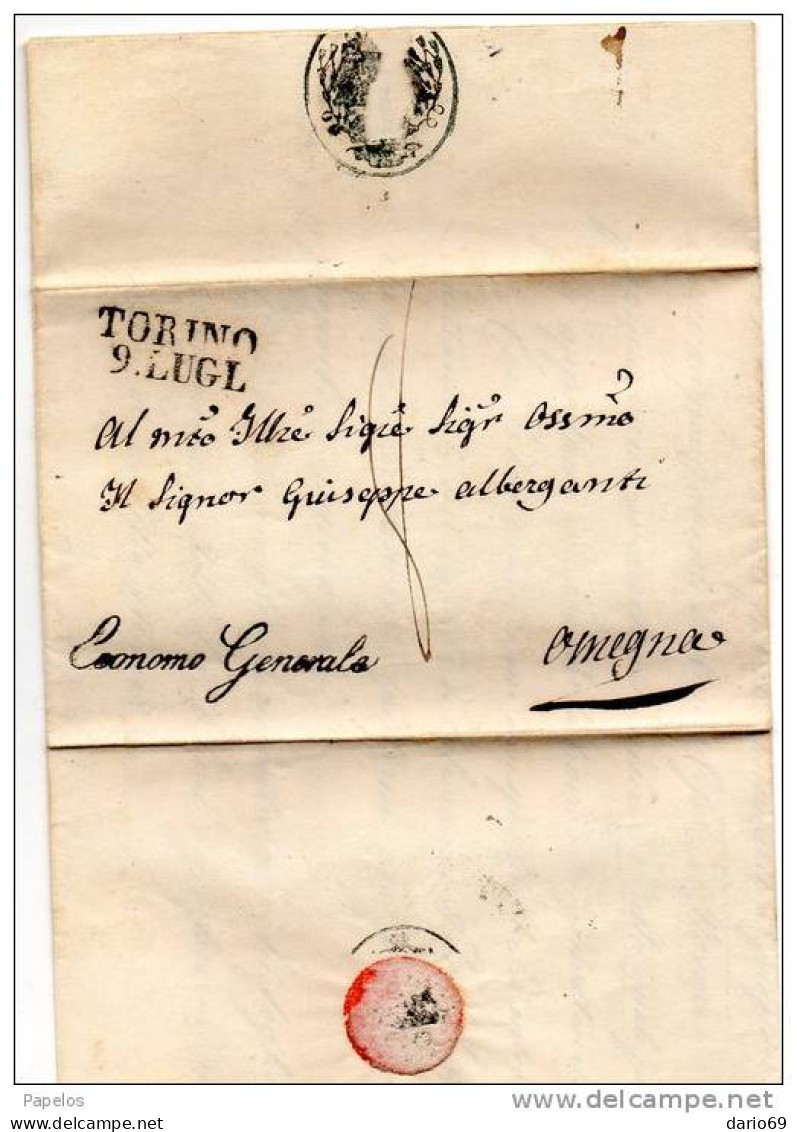 TORINO
9. LUGL
Al mto Illre Sigre Sigr Ossmo
Il Signor Guiseppe Alberganti
Economo Generale
Omegna
Papelos
www.delcampe.net
dario69